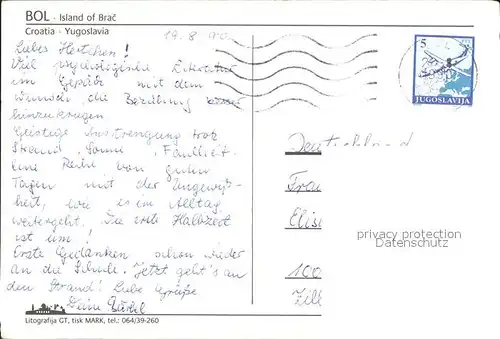 BOL - Island of Brač
Croatia - Yugoslavia
19.8.90
Liebes Hertchen!
Viel psychologische Literatur
im Gepäck mit dem
Wunsch, die Beziehung besser
hinzukriegen
Geistige Anstrengung trotz
Strand, Sonne,
Eine Reihe von guten
Tagen mit der Ungewiß-
heit, wie es im Alltag
weitergeht. Die erste Halbzeit
ist um!
Erste Gedanken schon wieder
an die Schule. Jetzt geht's an
den Strand! Liebe Grüße
Deine Bärbel
Litografija GT, tisk MARK, tel.: 064/39-260
5
JUGOSLAVIJA
Deutschland
Frau
Elis
privacy protection
Datenschutz
100
Zill